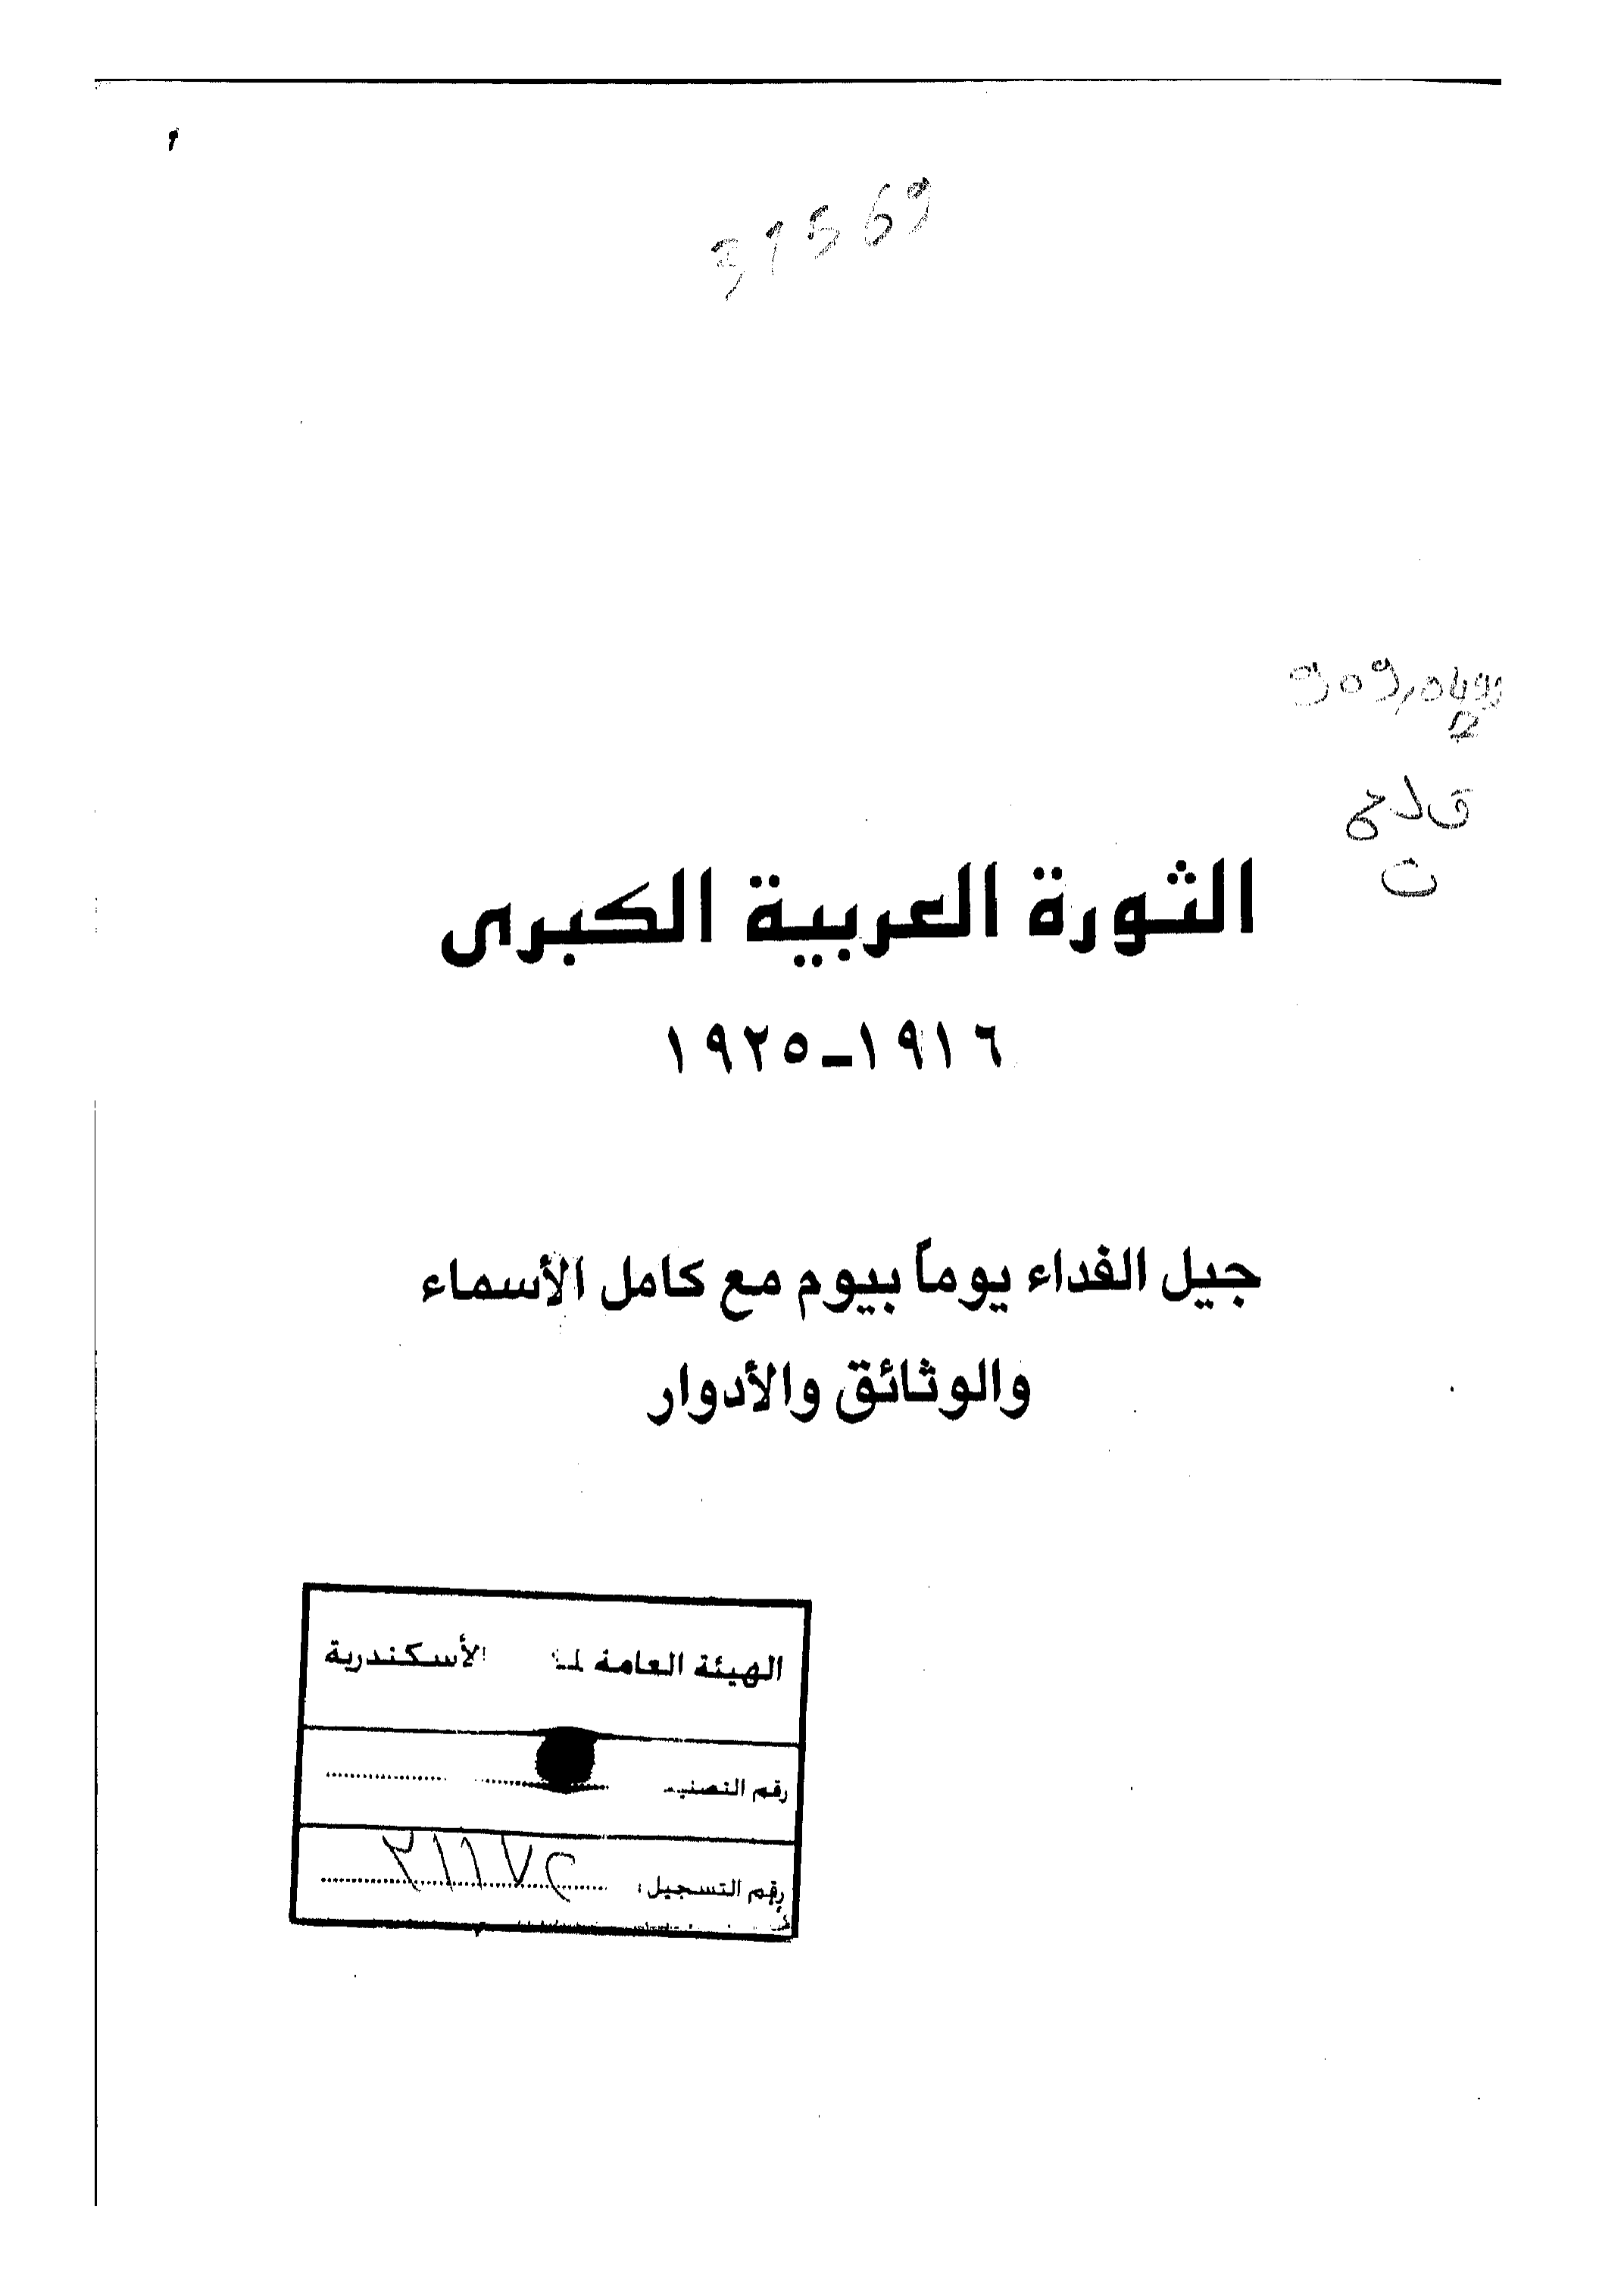 31569
909,049
2
قلع
ث
الثورة العربية الكبرى
١٩١٦-١٩٢٥
جيل الفداء يوماً بيوم مع كامل الأسماء
والوثائق والأدوار
الهيئة العامة الأسكندرية
رقم
رقم التسجيل: